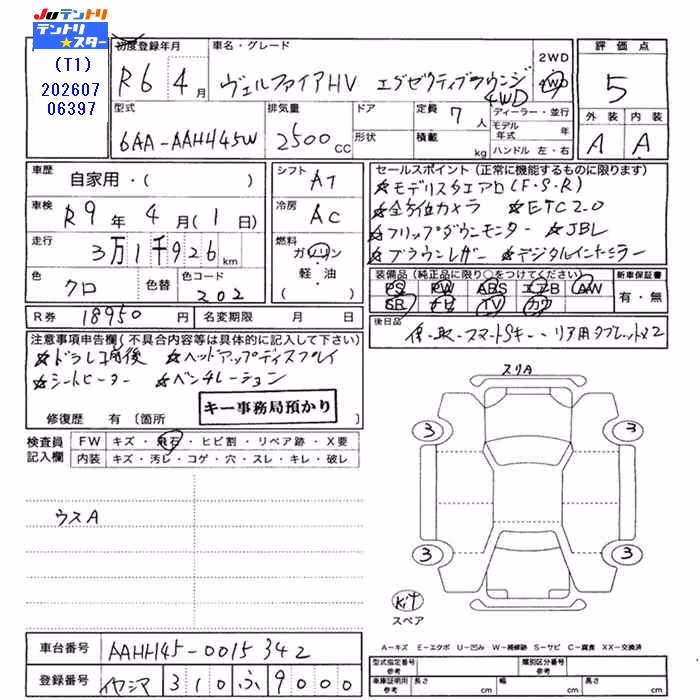 JUテントリ
テントリ
スター
(T1)
202607
06397
初度登録年月
R6 4月
車名・グレード
ヴェルファイアHV エグゼクティブラウンジ
4WD
2WD
4WD
評価点
5
外装 内装
A A
型式
6AA-AAHH45W
排気量
2500cc
ドア
形状
定員 7人
積載 kg
ディーラー・並行
モデル年式 年
ハンドル 左・右
車歴
自家用・( )
車検
R9年4月(1日)
走行
3万1千926km
色
クロ
色替
色コード
202
シフト AT
冷房 AC
燃料
ガソリン
軽・油
( )
セールスポイント(正常に機能するものに限ります)
☆モデリスタエアロ(F・S・R)
☆全方位カメラ ☆ETC2.0
☆フリップダウンモニター ☆JBL
☆ブラウンレザー ☆デジタルインナーミラー
装備品(純正品に限り○をつけてください)
PS PW ABS エアB AW
SR ナビ TV カワ
新車保証書
有・無
R券 18950円
名変期限 月 日
後日品
保・取・スマートSキー・リア用タブレットx2
注意事項申告欄(不具合内容等は具体的に記入して下さい)
☆ドラレコ前後 ☆ヘッドアップディスプレイ
☆シートヒーター ☆ベンチレーション
キー事務局預かり
修復歴 有〔箇所
検査員記入欄
FW キズ・飛石・ヒビ割・リペア跡・X要
内装 キズ・汚レ・コゲ・穴・スレ・キレ・破レ
ウスA
スリA
3 3
3 3
Kit
スペア
A-キズ E-エクボ U-凹み W-補修跡 S-サビ C-腐食 XX-交換済
車台番号 AAHH45-0015342
登録番号 310 ふ 9000
型式指定番号
参考
類別区分番号
参考
車庫証明用
参考
長さ cm
幅 cm
高さ cm